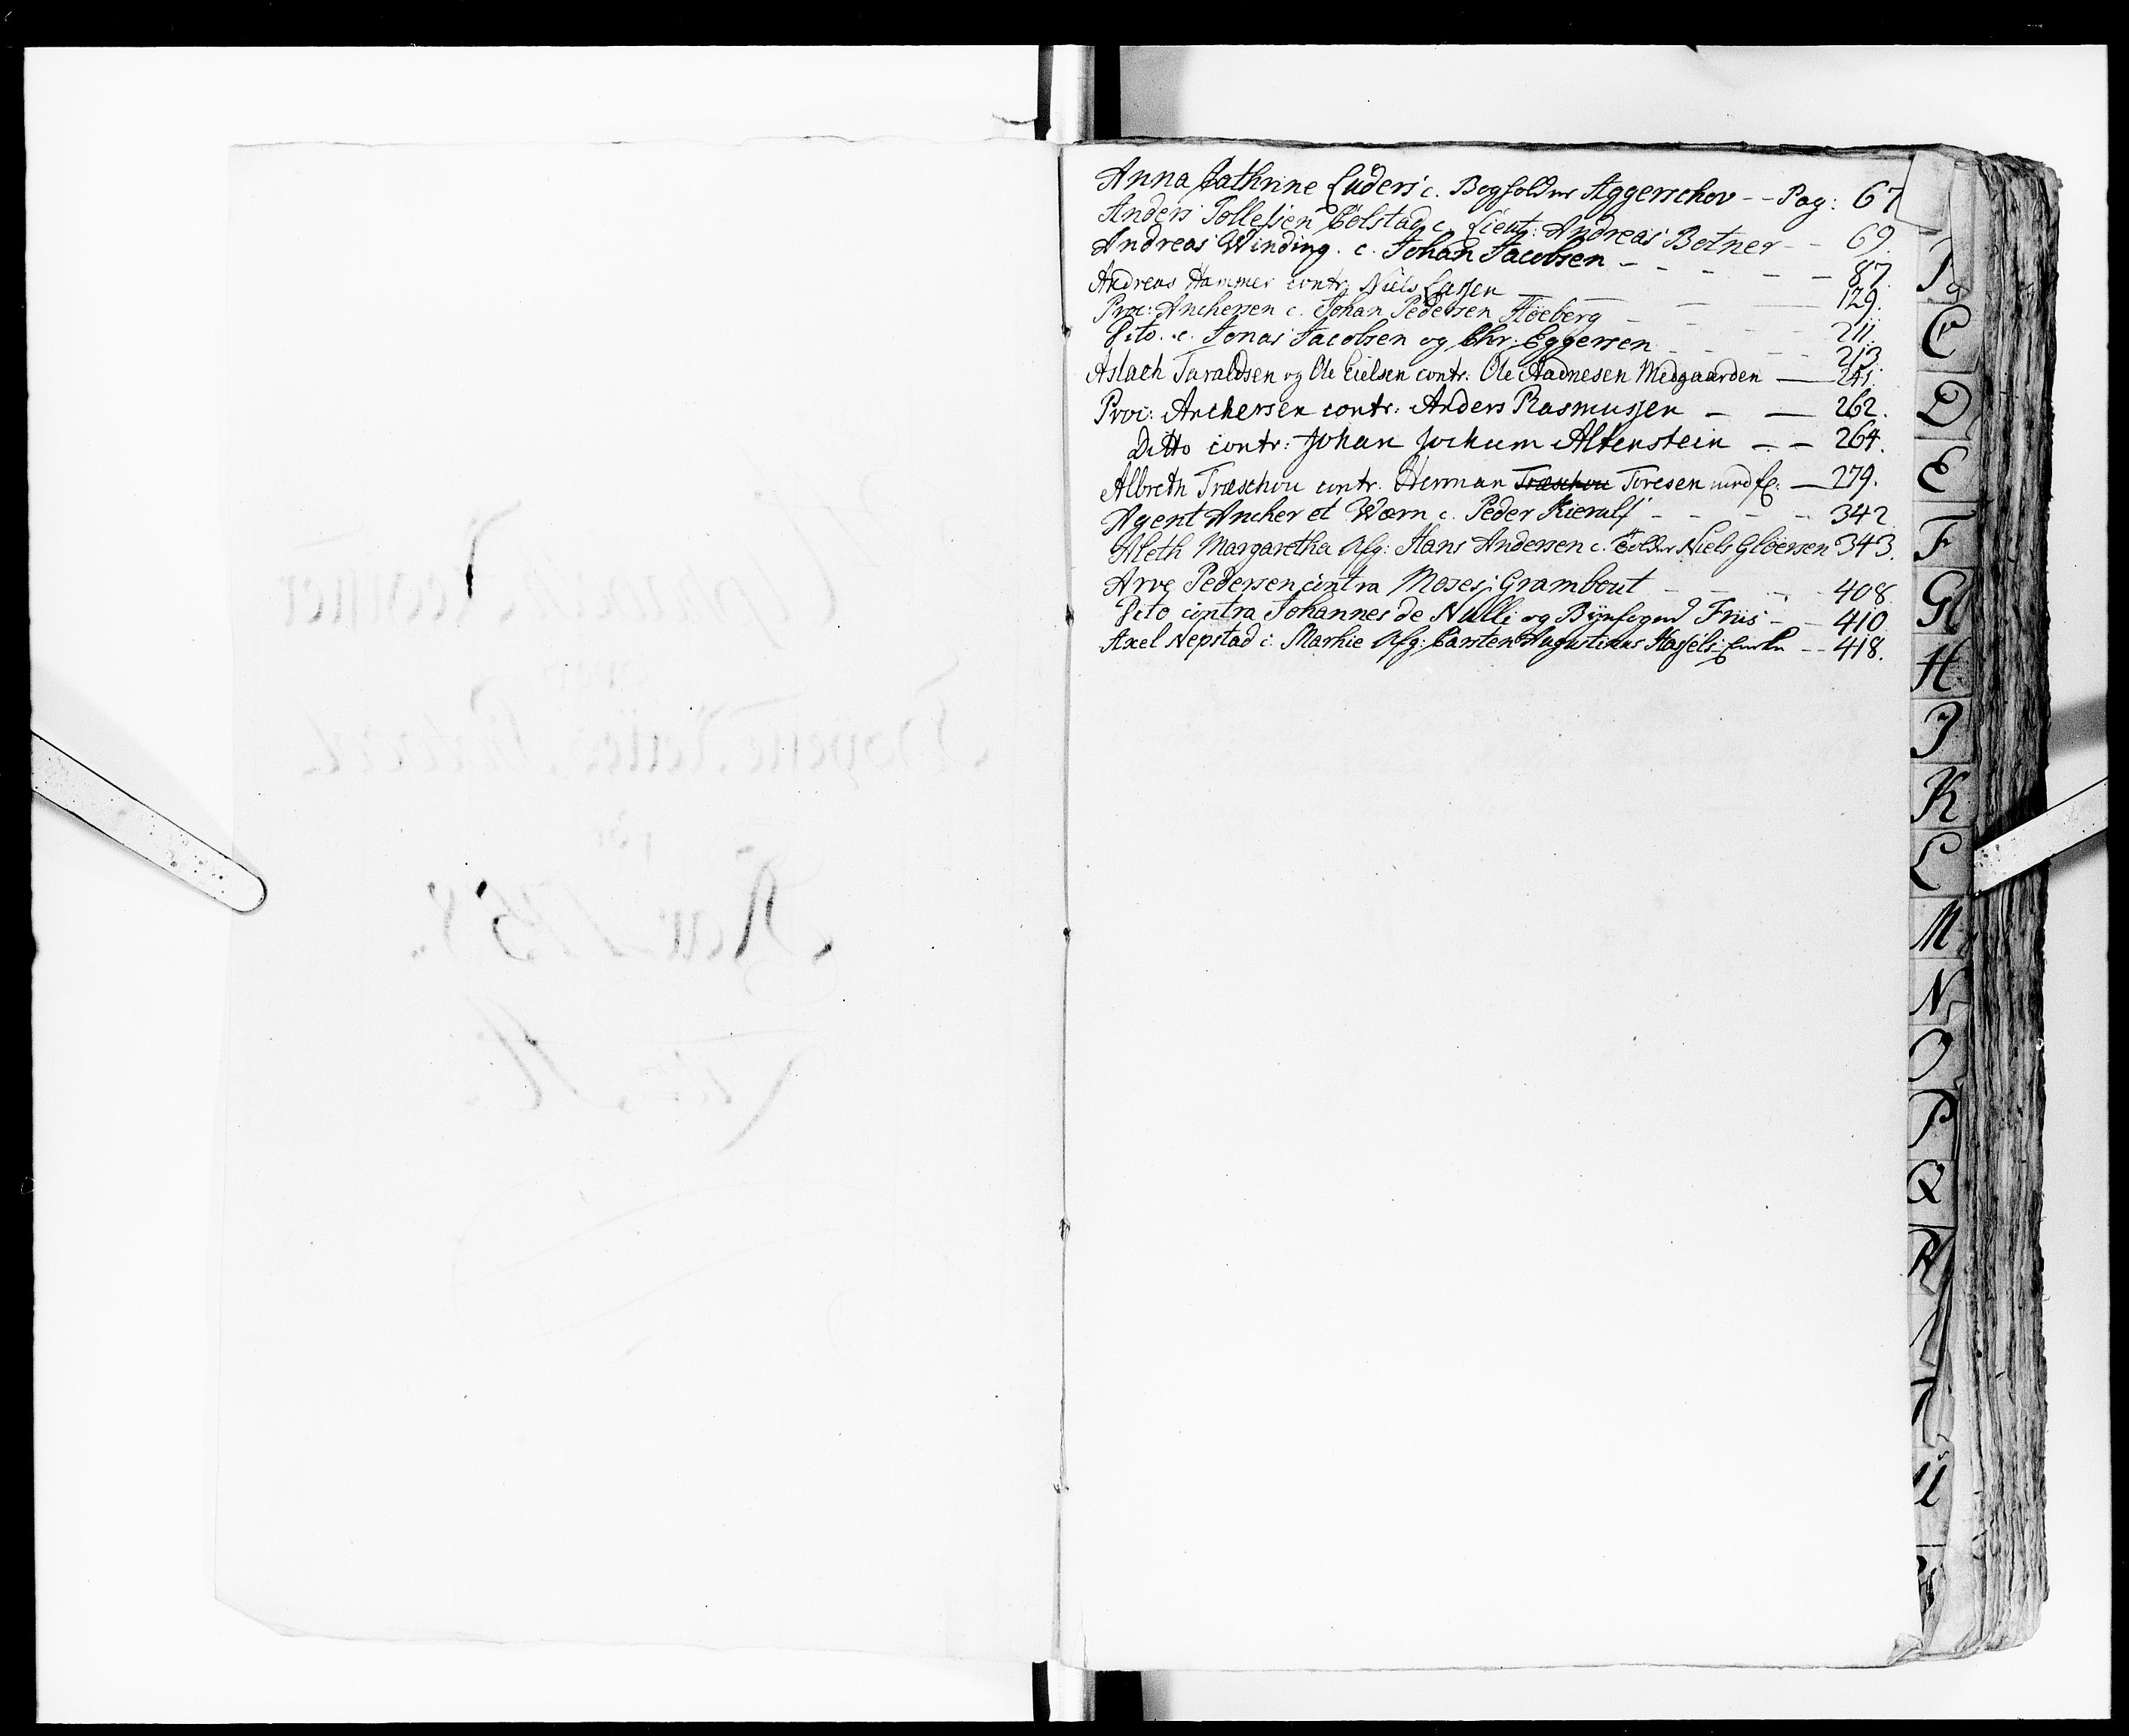 Anna Cathrine Luders c. Bogholder Aggerschov -- Pag: 67
Anders Tollefsen Bölstad c. Lieut: Andreas Botner -- 69.
Andreas Winding. c. Johan Jacobsen - - - - - 87.
Andreas Hammer contr: Niels Lassen — — — 129.
Proc: Anchersen c. Johan Pedersen Höeberg - - - 211.
Dito. c. Jonas Jacobsen og Chr: Eggersen - - - 213.
Aslach Taraldsen og Ole Eielsen contr: Ole Aadnesen Medgaarden — 241.
Proc: Anchersen contr: Anders Rasmussen — — 262.
Ditto contr: Johan Jochum Altenstein — — 264.
Albreth Træschou contr. Herman Træschou Toresen — 279.
Agent Ancher et Wærn c. Peder Kierulf - - - - 342.
Aleth Margaretha Afg: Hans Andersen c. Niels Glöersen 343.
Arve Pedersen contra Moses Grambout - - - - 408.
Dito contra Johannes de Nulli og Byefogud Friis - - 410
Axel Nepstad c. Markie Afg: Carsten Augustinus Hassels Enke -- 418.
C
D
E
F
G
H
I
K
L
M
N
O
P
Q
R
U